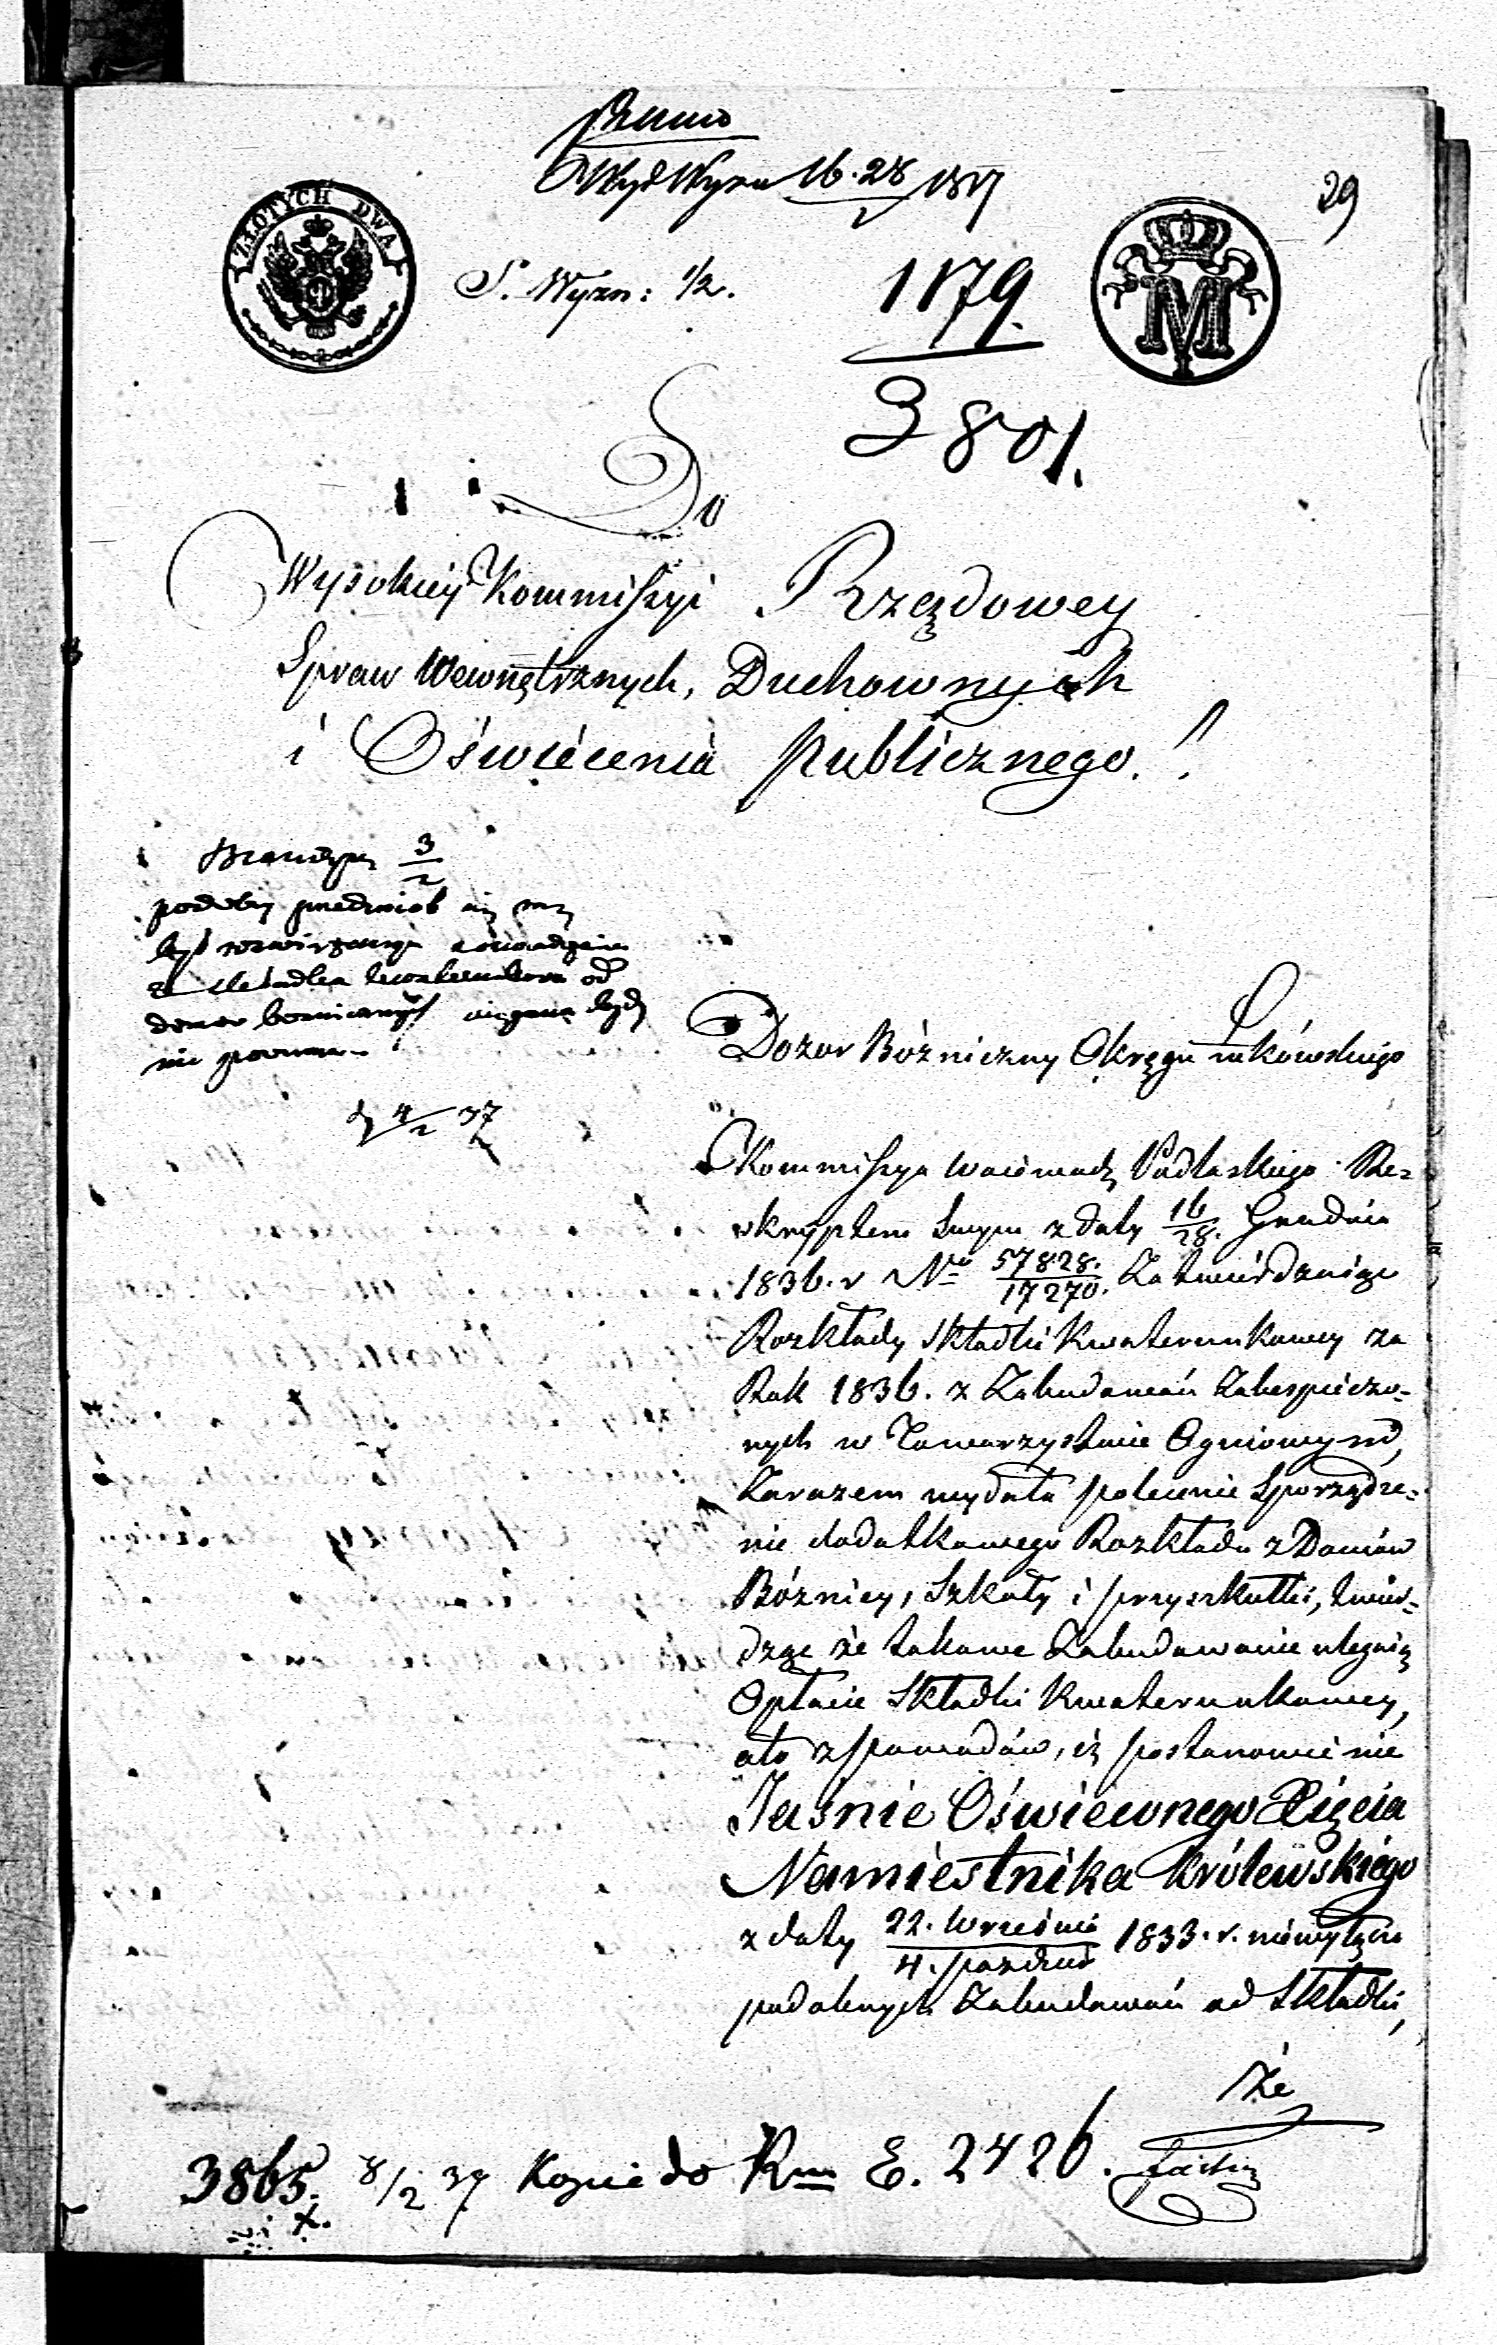 16.28 1837
29
ZŁOTYCH DWA
S. Wyzn: 1/2.
1179.
3801.
M
Do
Wysokiey Kommissyi Rządowey
Spraw Wewnętrznych, Duchownych
i Oświecenia Publicznego!
3/2
podobny przedmiot
nie
4/2 37
Dozor Bóżniczny Okręgu Łukówskiego
Kommissya Wdztwa Podlaskiego Re=
skryptem Swym z daty 16/28. Grudnia
1836. r No 57828./17270. Zatwierdzaiąc
Rozkłady Składki Kwaterunkowey za
Rok 1836. z Zabudowań Zabespieczo=
nych w Towarzystwie Ogniowym,
Zarazem wydała polecenie Sporządze=
nie dodatkowego Rozkładu z Domów
Bóżnicy, Szkoły i przyszkułki, twier=
dząc że takowe Zabudowanie ulegaią
Opłacie Składki Kwaterunkowey,
a to z powodów, iż postanowienie
Jaśnie Oświeconego Xięcia
Namiestnika Królewskiégo
z daty 22. Września/4. Paździer 1833. r. niewyłącza
podobnych Zabudowań od Składki,
Że
3865. 8/2 37 Kopie do E. 2426.